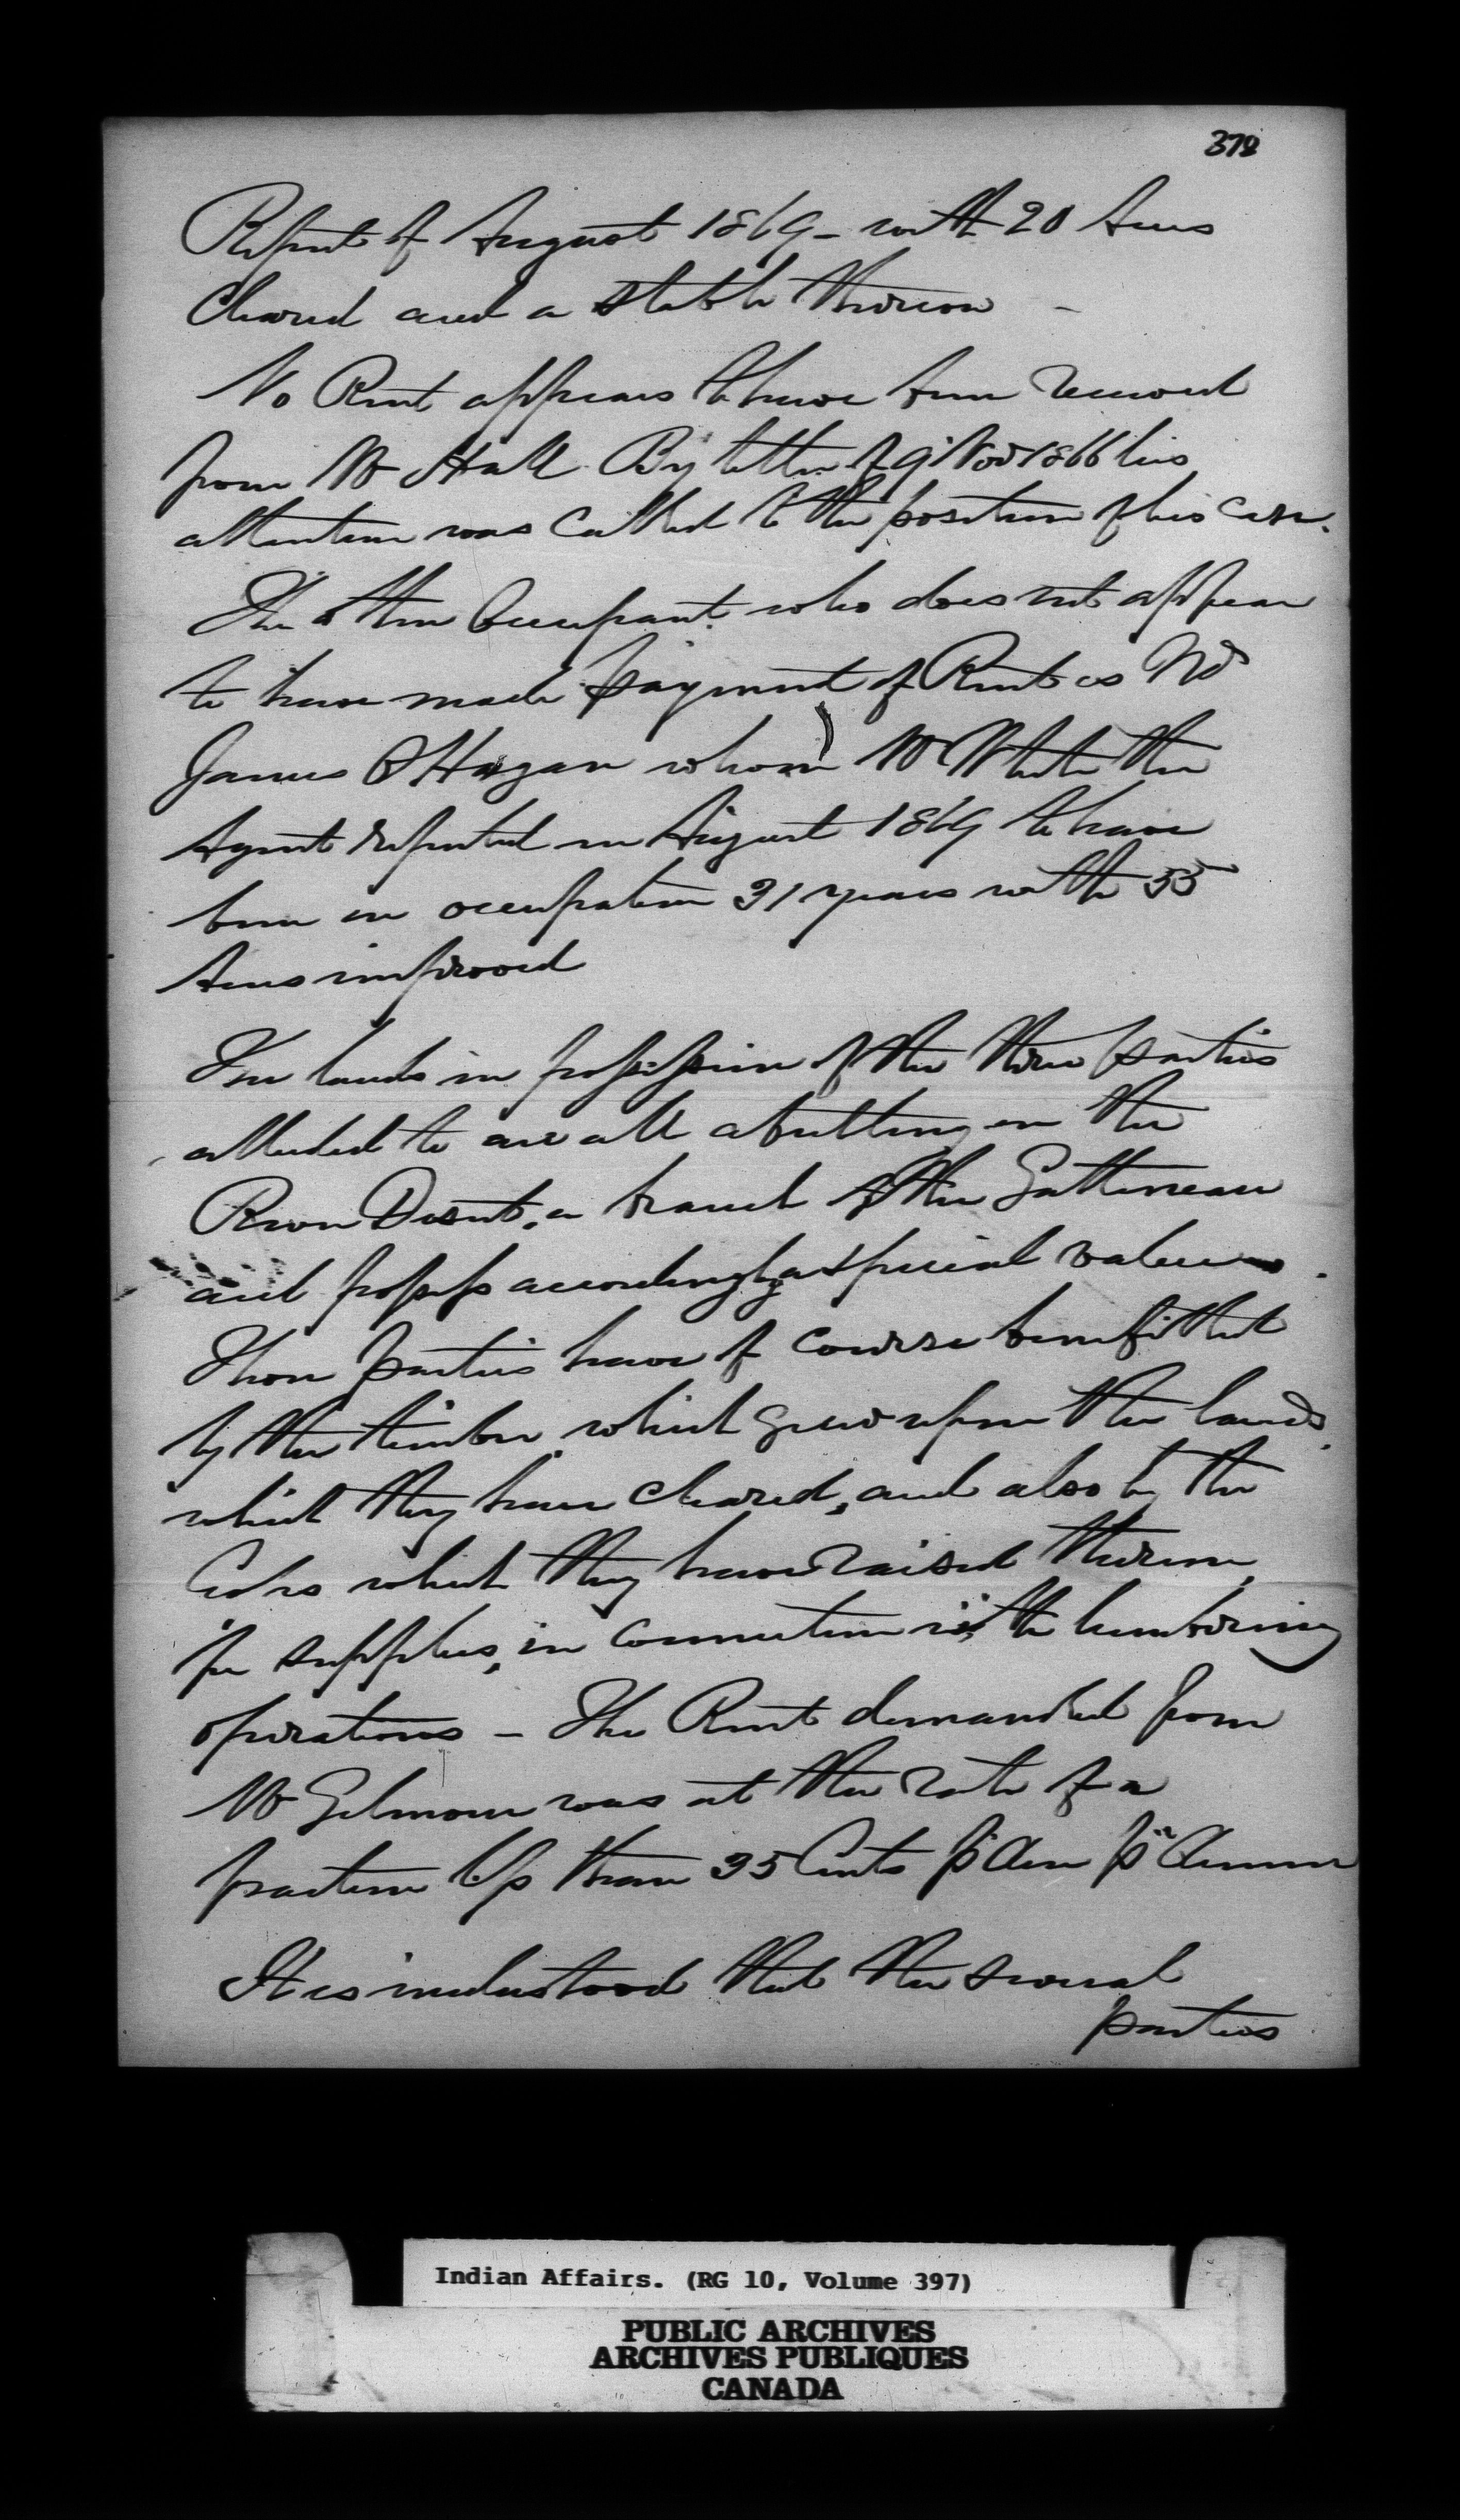 378
Report of August 1869 – with 20 Acres
Cleared and a stable thereon –
No Rent appears to have been received
from Mr Hall. By letter of 9 Nov 1866 his
attention was called to the position of his case.
The other Occupant who does not appear
to have made payment of Rent is Mr
James O'Hagan whom Mr White the
Agent reported in August 1869 to have
been in occupation 31 years with 55
Acres improved
The lands in possession of the three parties
alluded to are all abutting on the
River Desert, a branch of the Gattineau
and possess accordingly a special value.
These parties have of course benefitted
by the timber which grew upon the lands
which they have cleared, and also by the
which they have raised thereon,
for supplies, in connection with lumbering
operations – The Rent demanded from
Mr Gilmour was at the rate of a
fraction less than 35 Cents pr Acre pr Annum
It is understood that the several
parties
Indian Affairs. (RG 10, Volume 397)
PUBLIC ARCHIVES
ARCHIVES PUBLIQUES
CANADA